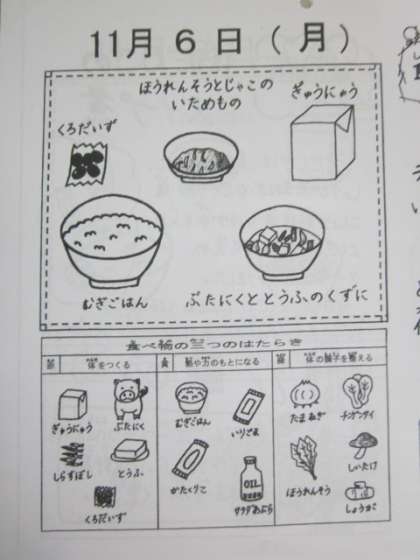 11月 6 日 ( 月 )
ほうれんそうとじゃこの
いためもの
ぎゅうにゅう
くろだいず
むぎごはん
ぶたにくととうふのくずに
食べ物の三つのはたらき
体をつくる
熱や力のもとになる
体の調子を整える
ぎゅうにゅう
ぶたにく
しらすぼし
とうふ
くろだいず
むぎごはん
いりごま
かたくりこ
OIL
サラダあぶら
たまねぎ
チンゲンサイ
しいたけ
ほうれんそう
しょうが